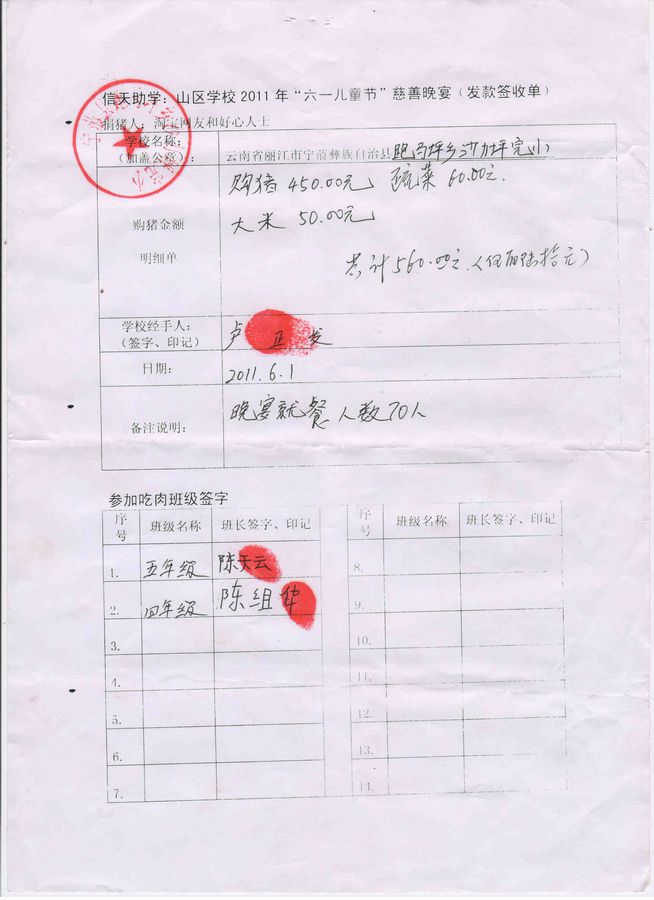 信天助学：山区学校2011年“六一儿童节”慈善晚宴（发款签收单）
捐猪人：淘宝网友和好心人士
学校名称：
（加盖公章）：
云南省丽江市宁蒗彝族自治县跑马坪乡沙力坪完小
购猪 450.00元 蔬菜 60.00元.
大米 50.00元
购猪金额
明细单
共计560.00元.（伍佰陆拾元）
学校经手人：
（签字、印记）
卢正发
日期：
2011.6.1
备注说明：
晚宴就餐人数70人
参加吃肉班级签字
序号 班级名称 班长签字、印记 序号 班级名称 班长签字、印记
1. 五年级 陈天云 8.
2. 四年级 陈组华 9.
3. 10.
4. 11.
5. 12.
6. 13.
7. 14.